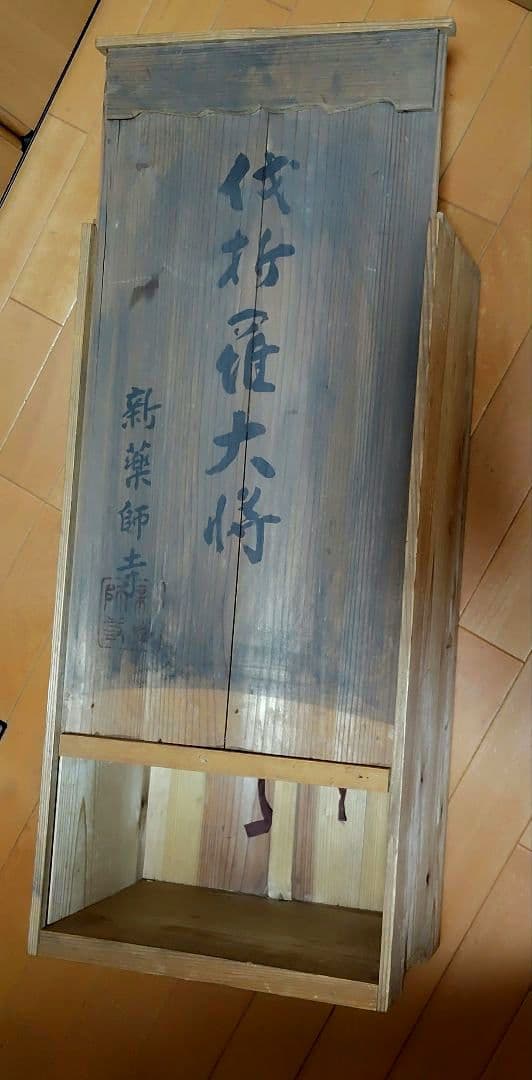 伐折羅大将
新薬師寺